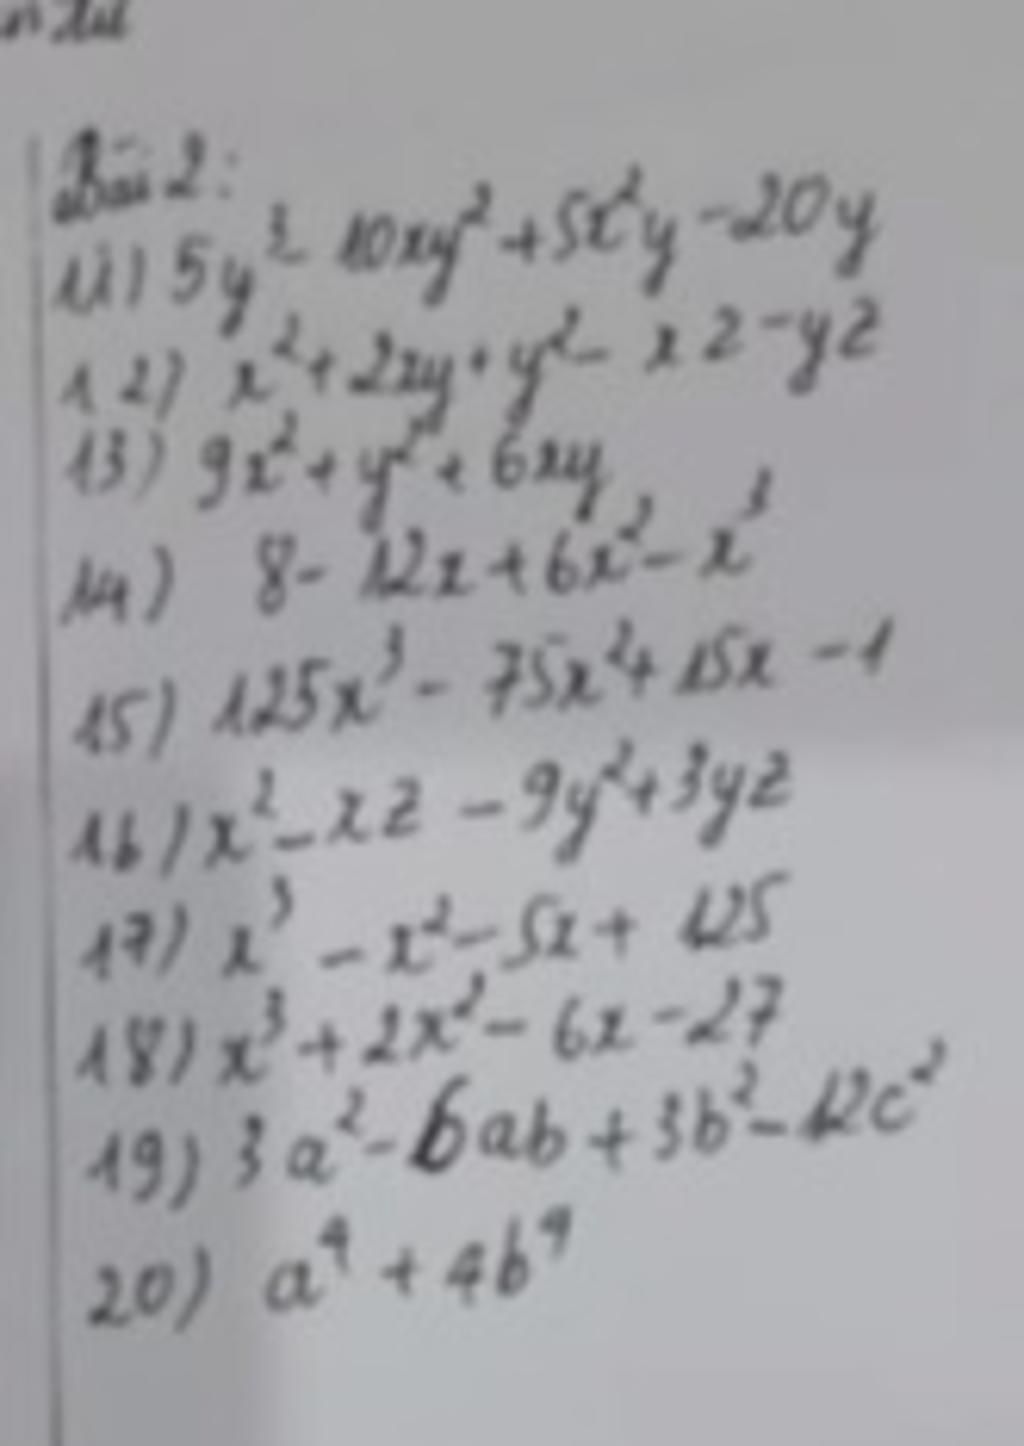 Bài 2:
11) 5y³ - 10xy² + 5x²y - 20y
12) x² + 2xy + y² - xz - yz
13) 9x² + y² + 6xy
14) 8 - 12x + 6x² - x³
15) 125x³ - 75x² + 15x - 1
16) x² - xz - 9y² + 3yz
17) x³ - x² - 5x + 125
18) x³ + 2x² - 6x - 27
19) 3a² - 6ab + 3b² - 12c²
20) a⁴ + 4b⁴